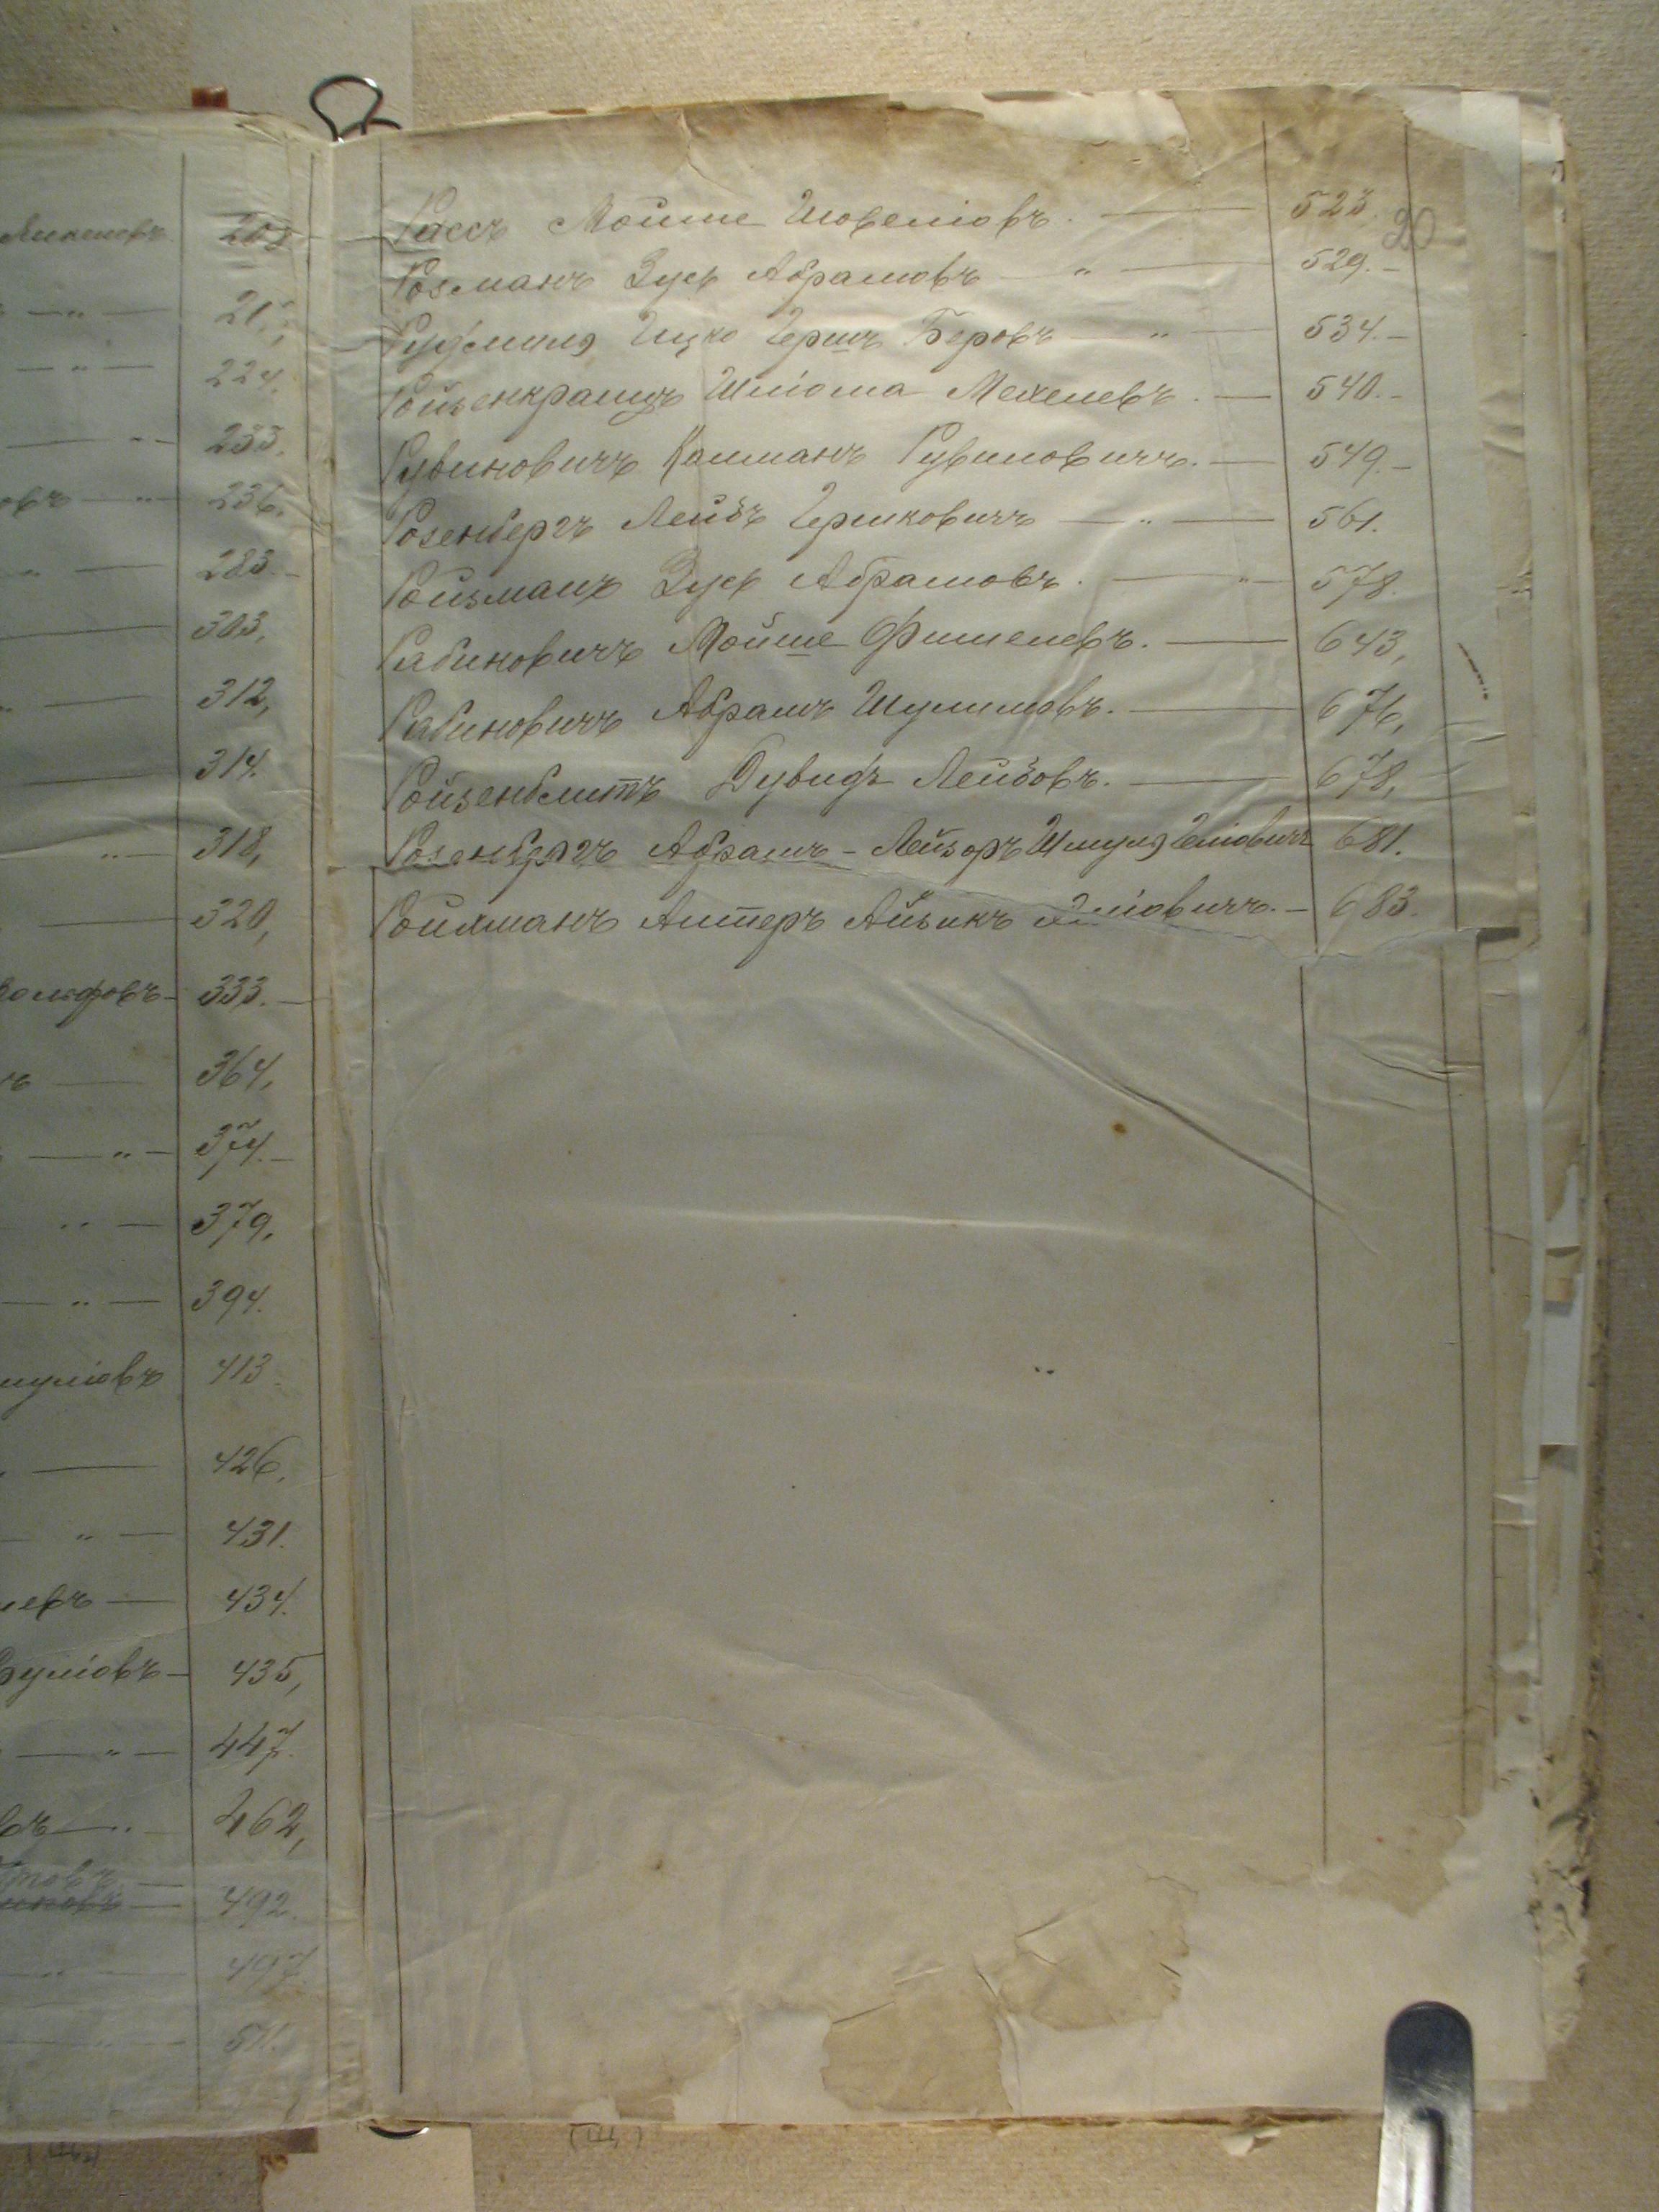 Ликелевъ 203
21
224.
233.
овъ 236.
283.
303,
312,
314.
318,
320,
Вольфовъ 333.
ъ 364,
374.
379,
394.
мулiовъ 413
426.
431.
левъ 434.
Зулiовъ 435,
447.
въ 462,
492.
497
511.
20
Рассъ Мойше Шовелiовъ. 523.
Розманъ Зусь Абрамовъ " 529.
Рудмиля Ицко Гершъ Беровъ " 534.
Ройзенкранцъ Шлiома Мехелевъ. 540.
Рувиновичъ Калманъ Рувиновичъ. 549.
Розенбергъ Лейбъ Гершковичъ " 561.
Ройзманъ Зусь Абрамовъ. " 578.
Рабиновичъ Мойше Фишелевъ. 643,
Рабиновичъ Абрамъ Шулимовъ. 676,
Ройзенблитъ Дувидъ Лейбовъ. 678,
Розенбергъ Абрамъ - Лейзоръ Шмуля 681.
Ройхманъ Алтеръ Айзикъ 683.